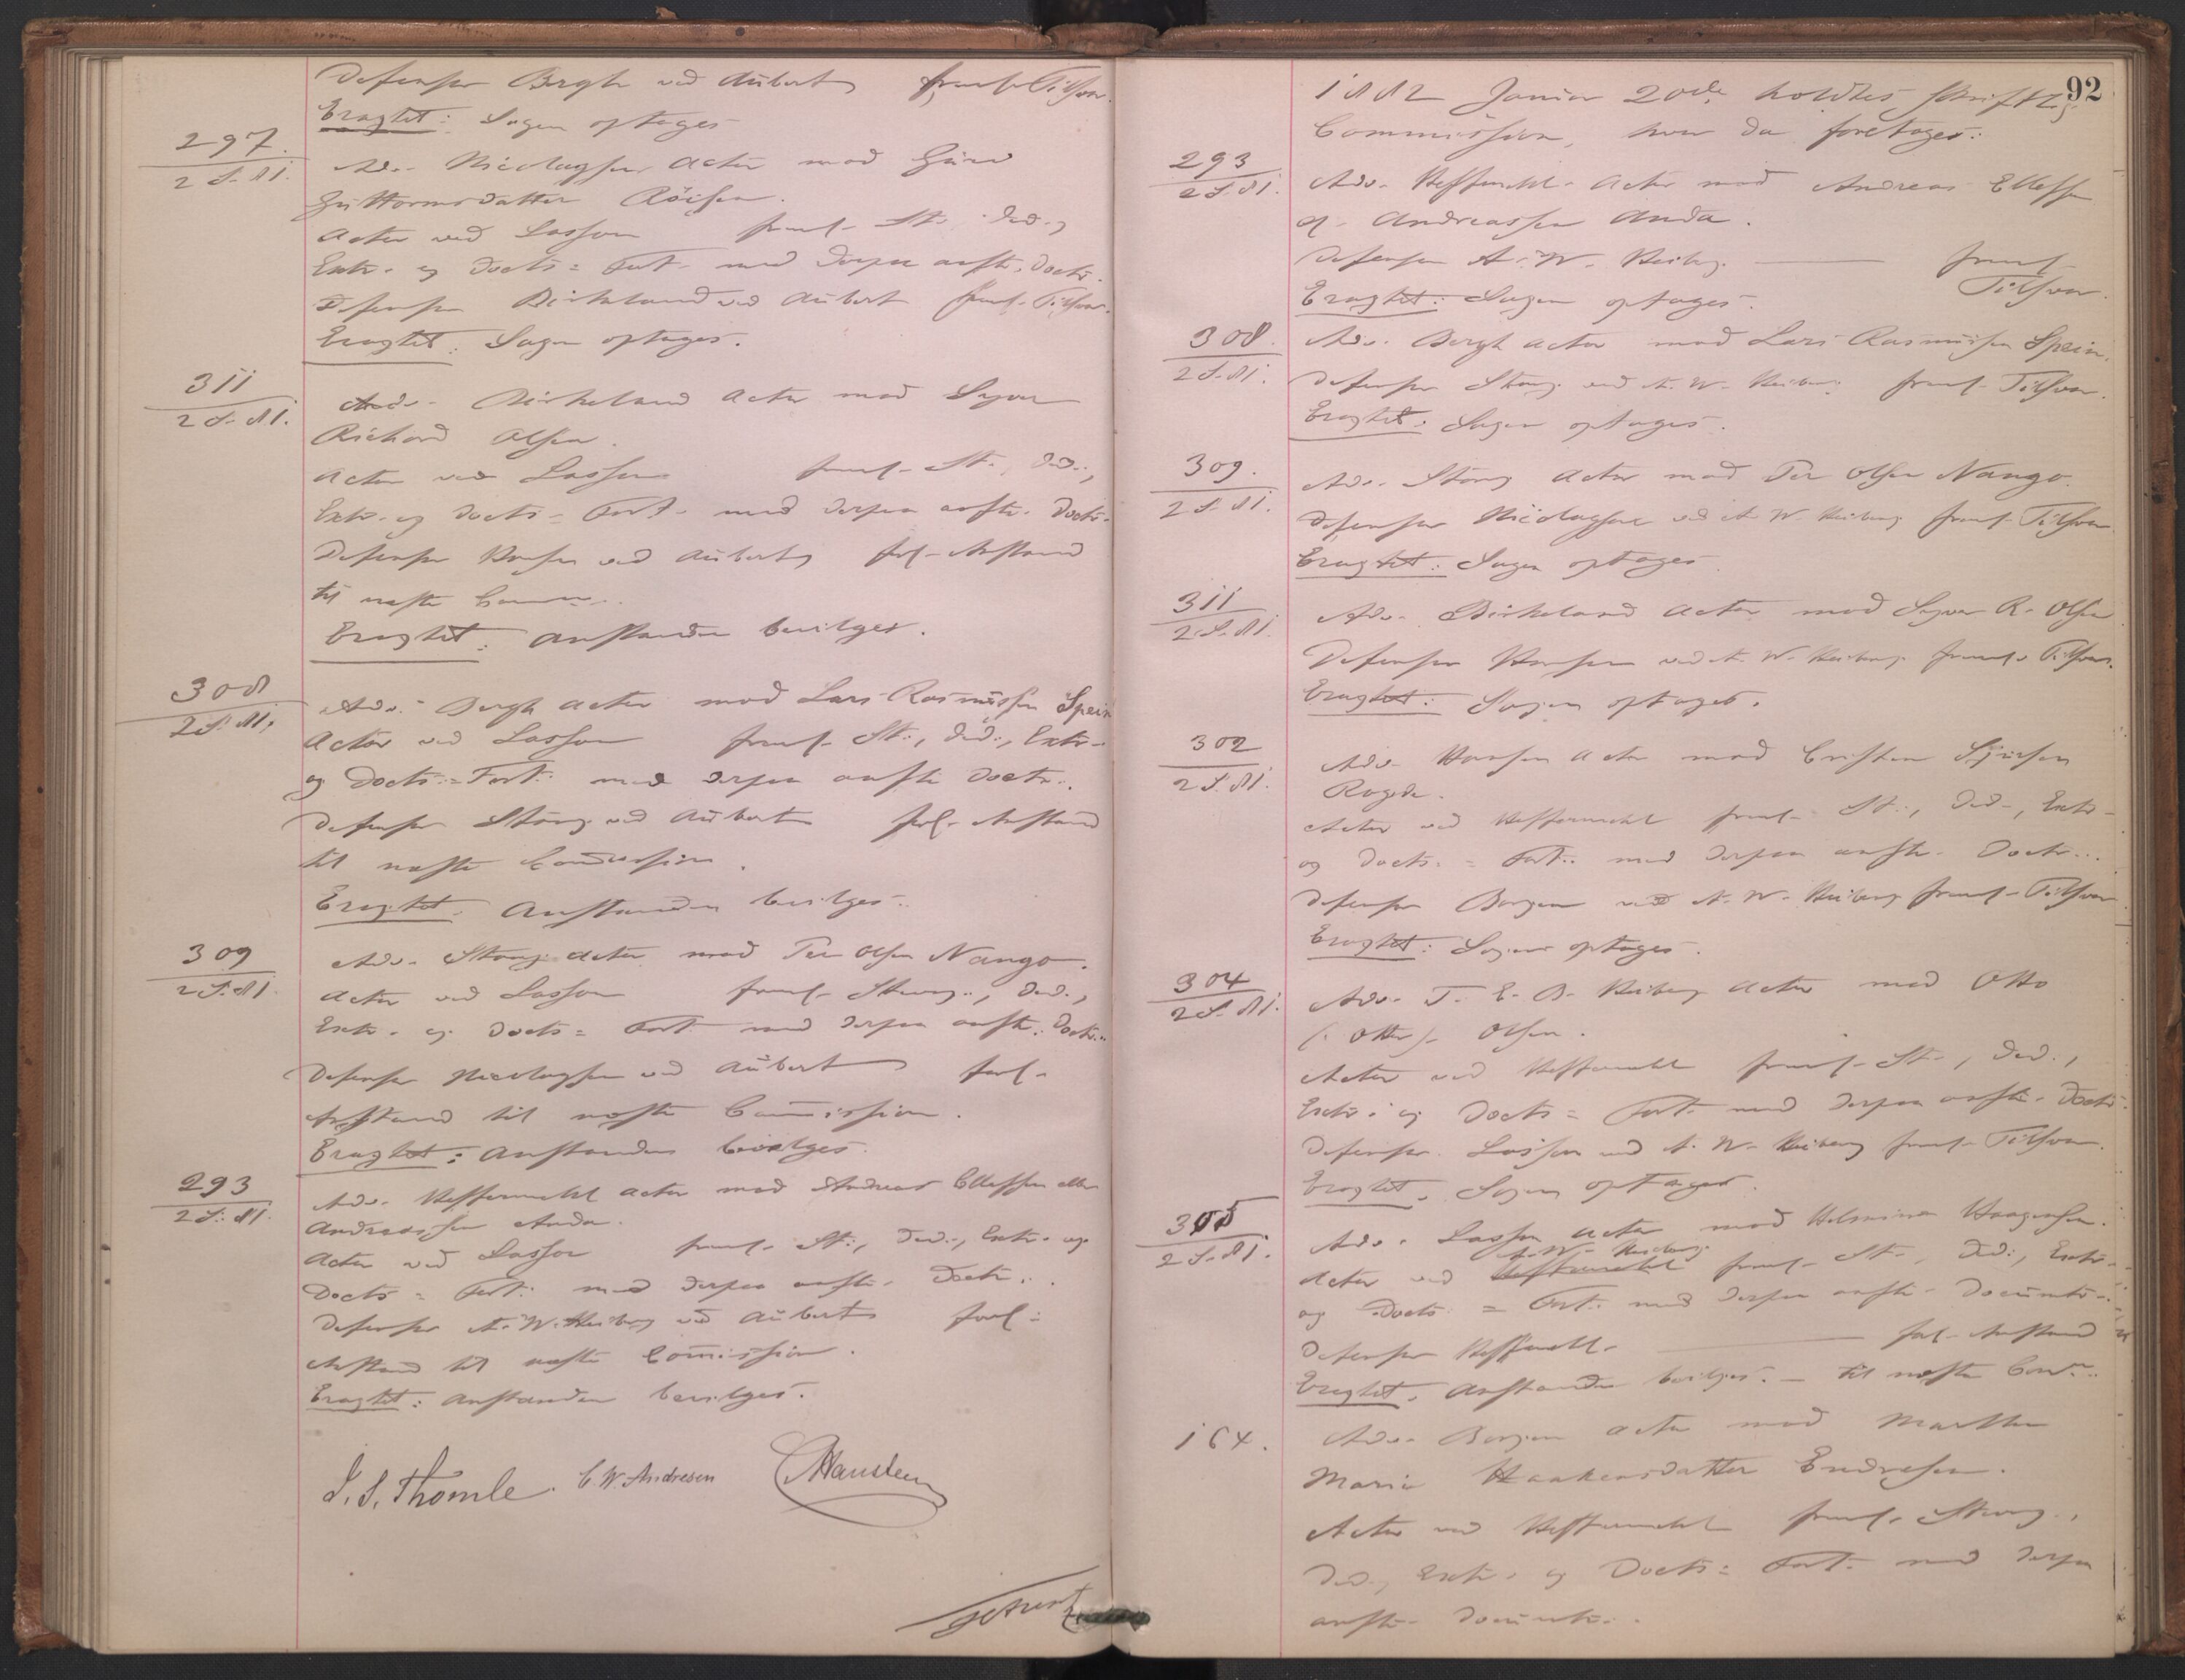 Defensor Bergh ved Aubert freml. Tilsvar.
Eragtet: Sagen optages
297.
2 S. 81.
Adv. Nicolaysen Actor mod Guri
Guttormsdatter Röisen.
Actor ved Lasson freml. St., Ded.,
Extr. og Docts = Fort. med derpaa anfte. Docte.
Defensor Birkeland ved Aubert freml. Tilsvar.
Eragtet: Sagen optages.
311
2 S. 81.
Adv. Birkeland Actor mod Syver
Richard Olsen.
Actor ved Lasson freml. St., Ded.,
Extr. og Docts = Fort. med derpaa anfte. Docte.
Defensor ved Aubert forl. Anstand
til næste Comm.
Eragtet: Anstanden bevilges.
308
2 S. 81.
Adv. Bergh Actor mod Lars Rasmussen Spein
Actor ved Lasson freml. St., Ded., Extr.
og Docts. = Fort. med derpaa anfte Docte.
Defensor Stang ved Aubert forl. Anstand
til næste Commission.
Eragtet: Anstanden bevilges.
309
2 S. 81.
Adv. Stang Actor mod Per Olsen Nango.
Actor ved Lasson freml. Stevng., Ded.,
Extr. og Docts = Fort. med derpaa anfte. Docte.
Defensor Nicolaysen ved Aubert forl.
Anstand til næste Commission.
Eragtet: Anstanden bevilges.
293
2 S. 81.
Adv. Heffermehl Actor mod Andreas Ellefsen eller
Andreassen Anda.
Actor ved Lasson freml. St., Ded., Extr. og
Docts = Fort. med derpaa anfte. Docte.
Defensor A. W. Heiberg ved Aubert forl.
Anstand til næste Commission.
Eragtet: Anstanden bevilges.
J. S. Thomle. C. W. Andresen CHansteen
92
1882 Januar 20de holdtes skriftlig
Commission, hvor da foretages:
293
2 S. 81.
Adv. Heffermehl Actor mod Andreas Ellefsen
el. Andreassen Anda.
Defensor A. W. Heiberg freml.
Tilsvar.
Eragtet: Sagen optages.
308.
2 S. 81.
Adv. Bergh Actor mod Lars Rasmussen Spein.
Defensor Stang ved A. W. Heiberg freml. Tilsvar.
Eragtet: Sagen optages.
309.
2 S. 81.
Adv. Stang Actor mod Per Olsen Nango.
Defensor Nicolaysen ved A. W. Heiberg freml. Tilsvar
Eragtet: Sagen optages
311
2 S. 81.
Adv. Birkeland Actor mod Syver R. Olsen
Defensor ved A. W. Heiberg freml. Tilsvar.
Eragtet: Sagen optages.
302
2 S. 81.
Adv. Actor mod Cristen
Actor ved Heffermehl freml. St., Ded., Extr.
og Docts. = Fort. med derpaa anfte. Docte.
Defensor Bergen ved A. W. Heiberg freml. Tilsvar
Eragtet: Sagen optages.
304
2 S. 81.
Adv. J. E. B. Heiberg Actor mod Otto
(: Otter) Olsen.
Actor ved Heffermehl freml. St., Ded.,
Extr. og Docts = Fort. med derpaa anfte. Docte.
Defensor Lasson ved A. W. Heiberg freml. Tilsvar.
Eragtet: Sagen optages.
305
2 S. 81.
Adv. Lasson Actor mod Helmine Haagensen.
A. W. Heiberg
Actor ved Heffermehl freml. St., Ded., Extr.
og Docts = Fort. med derpaa anfte. Documtr.
Defensor Heffermehl. forl. Anstand
Eragtet: Anstanden bevilges. – til næste Comn.
164.
Adv. Bergen Actor mod Marthe
Marie Haakensdatter Endresen.
Actor ved Heffermehl freml. Stevng.,
Ded., Extr. og Docts = Fort. med derpaa
anfte. Documtr.